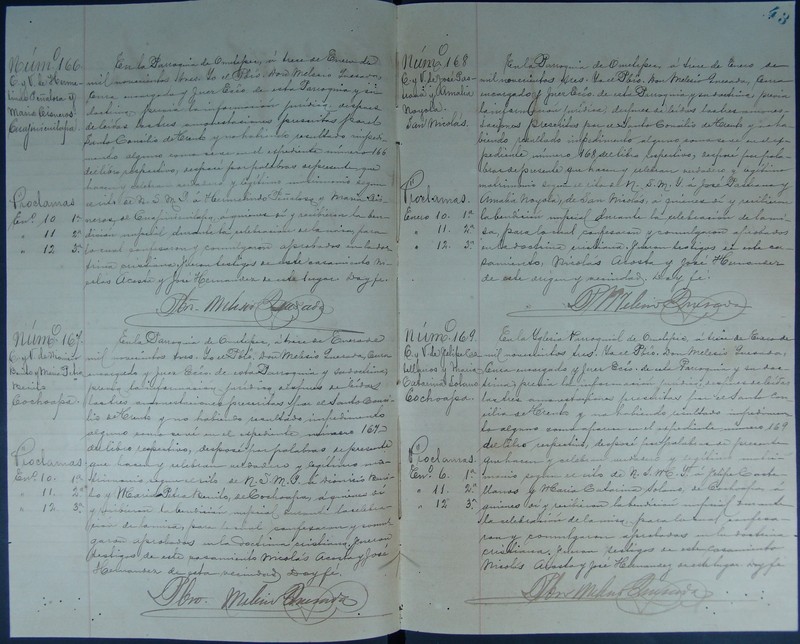 43
Núm.º 166
C. y V. de Herme-
María Cisneros
Cuajinicuilapa.
Proclamas
En.º 10. 1.ª
" 11. 2.ª
" 12. 3.ª
En la Parroquia de Ometepec, á trece de Enero de
mil novecientos tres. Yo el Pbro. Don Melesio Quesada,
Cura encargado y Juez Ecco. de esta Parroquia y su
doctrina, previa la información jurídica, después
de leídas las tres amonestaciones prescritas por el
Santo Concilio de Trento y no habiendo resultado impedi-
mento alguno como consta en el expediente número 166
del libro respectivo, desposé por palabras de presente que
hacen y celebran verdadero y legítimo matrimonio segun
el rito de N. S. M. I. á
de Cuajinicuilapa, á quienes así y recibieron la ben-
dición nupcial durante la celebración de la misa, para
la cual confesaron y comulgaron aprobados en la doc-
trina cristiana. Fueron testigos de este casamiento Ni-
colás Acosta y José Hernandez de este lugar. Doy fé.
Pbro. Melesio Quesada
Núm.º 167.
Cochoapa.
Proclamas.
En.º 10. 1.ª
" 11. 2.ª
" 12. 3.ª
En la Parroquia de Ometepec, á trece de Enero de
mil novecientos tres. Yo el Pbro. Don Melesio Quesada, Cura
encargado y Juez Ecco. de esta Parroquia y su doctrina,
previa la información jurídica, después de leídas
las tres amonestaciones prescritas por el Santo Conci-
lio de Trento y no habiendo resultado impedimento
alguno como consta en el expediente número 167
del libro respectivo, desposé por palabras de presente
que hacen y celebran verdadero y legítimo ma-
trimonio segun el rito de N. S. M. I. á Dionicio
y María de Cochoapa, á quienes así
y recibieron la bendición nupcial durante la celebra-
ción de la misa, para la cual confesaron y comul-
garon aprobados en la doctrina cristiana. Fueron
testigos de este casamiento Nicolás Acosta y José
Hernandez de esta vecindad. Doy fé.
Pbro. Melesio Quesada
Núm.º 168
C. y V. de José
y Amalia
Noyola.
San Nicolás.
Proclamas.
Enero 10. 1.ª
" 11. 2.ª
" 12. 3.ª
En la Parroquia de Ometepec, á trece de Enero de
mil novecientos tres. Yo el Pbro. Don Melesio Quesada, Cura
encargado y Juez Ecco. de esta Parroquia y su doctrina, previa
la información jurídica, después de leídas las tres amones-
taciones prescritas por el Santo Concilio de Trento y no ha-
biendo resultado impedimento alguno como consta en el ex-
pediente número 168 del libro respectivo, desposé por pala-
bras de presente que hacen y celebran verdadero y legítimo
matrimonio segun el rito de N. S. M. I. á José
Amalia Noyola, de San Nicolás, á quienes así y recibieron
la bendición nupcial durante la celebración de la mi-
sa, para la cual confesaron y comulgaron aprobados
en la doctrina cristiana. Fueron testigos en este ca-
samiento, Nicolás Acosta y José Hernandez
de este origen y vecindad. Doy fé.
P. Melesio Quesada
Núm.º 169.
C. y V. de Felipe Cas-
tellanos y María
Catarina Solano
Cochoapa.
Proclamas.
En.º 6. 1.ª
" 11. 2.ª
" 12. 3.ª
En la Iglesia Parroquial de Ometepec, á trece de Enero de
mil novecientos tres. Yo el Pbro. Don Melesio Quesada,
Cura encargado y Juez Ecco. de esta Parroquia y su doc-
trina, previa la información jurídica, después de leídas
las tres amonestaciones prescritas por el Santo Con-
cilio de Trento y no habiendo resultado impedimen-
to alguno como aparece en el expediente número 169
del libro respectivo, desposé por palabras de presente
que hacen y celebran verdadero y legítimo matri-
monio segun el rito de N. S. M. I. á Felipe Caste-
llanos y María Catarina Solano, de Cochoapa, á
quienes así y recibieron la bendición nupcial durante
la celebración de la misa, para la cual confesa-
ron y comulgaron aprobados en la doctrina
cristiana. Fueron testigos en este casamiento
Nicolás Acosta y José Hernandez de este lugar. Doy fé.
Pbro. Melesio Quesada